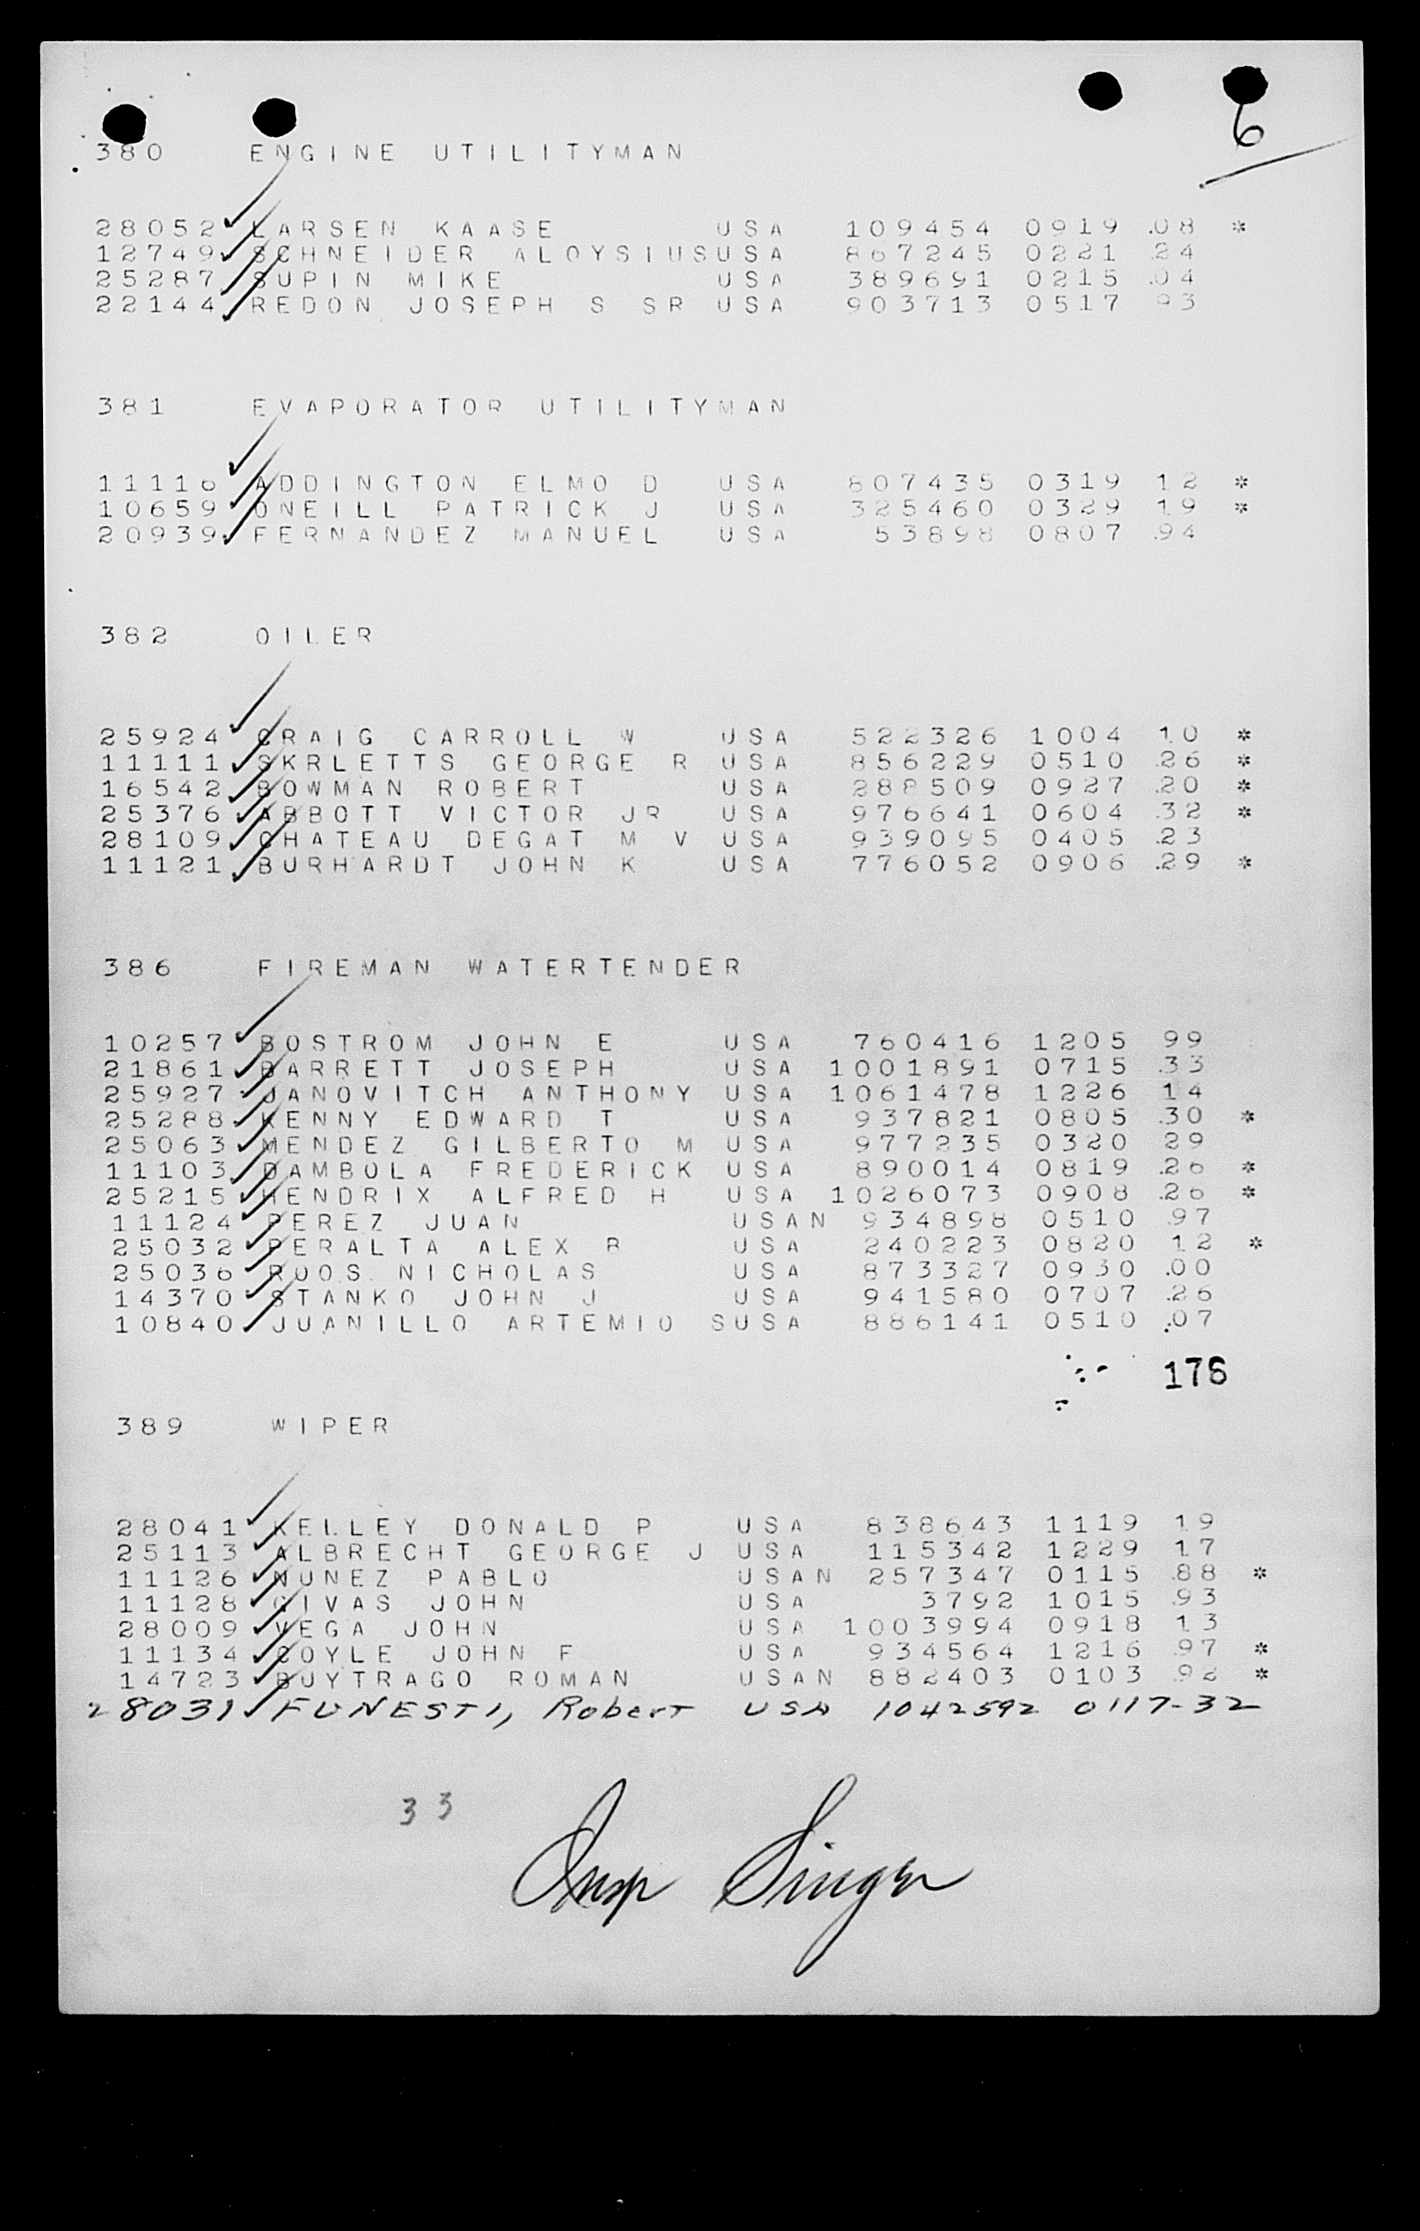 6
380 ENGINE UTILITYMAN
28052 LARSEN KAASE USA 109454 0919 .08 *
12749 SCHNEIDER ALOYSIUSUSA 867245 0221 .24
25287 SUPIN MIKE USA 389691 0215 .04
22144 REDON JOSEPH S SR USA 903713 0517 93
381 EVAPORATOR UTILITYMAN
11116 ADDINGTON ELMO D USA 807435 0319 12 *
10659 ONEILL PATRICK J USA 325460 0329 19 *
20939 FERNANDEZ MANUEL USA 53898 0807 .94
382 OILER
25924 CRAIG CARROLL W USA 522326 1004 10 *
11111 SKRLETTS GEORGE R USA 856229 0510 .26 *
16542 BOWMAN ROBERT USA 288509 0927 .20 *
25376 ABBOTT VICTOR JR USA 976641 0604 .32 *
28109 CHATEAU DEGAT M V USA 939095 0405 .23
11121 BURHARDT JOHN K USA 776052 0906 .29 *
386 FIREMAN WATERTENDER
10257 BOSTROM JOHN E USA 760416 1205 99
21861 BARRETT JOSEPH USA 1001891 0715 .33
25927 JANOVITCH ANTHONY USA 1061478 1226 14
25288 KENNY EDWARD T USA 937821 0805 .30 *
25063 MENDEZ GILBERTO M USA 977235 0320 29
11103 DAMBOLA FREDERICK USA 890014 0819 .26 *
25215 HENDRIX ALFRED H USA 1026073 0908 .26 *
11124 PEREZ JUAN USAN 934898 0510 .97
25032 PERALTA ALEX B USA 240223 0820 12 *
25036 ROOS NICHOLAS USA 873327 0930 .00
14370 STANKO JOHN J USA 941580 0707 .26
10840 JUANILLO ARTEMIO SUSA 886141 0510 .07
176
389 WIPER
28041 KELLEY DONALD P USA 838643 1119 19
25113 ALBRECHT GEORGE J USA 115342 1229 17
11126 NUNEZ PABLO USAN 257347 0115 .88 *
11128 GIVAS JOHN USA 3792 1015 .93
28009 VEGA JOHN USA 1003994 0918 13
11134 COYLE JOHN F USA 934564 1216 .97 *
14723 BUYTRAGO ROMAN USAN 882403 0103 .92 *
28031 FUNESTI, Robert USA 1042592 0117-32
33
Insp Singer